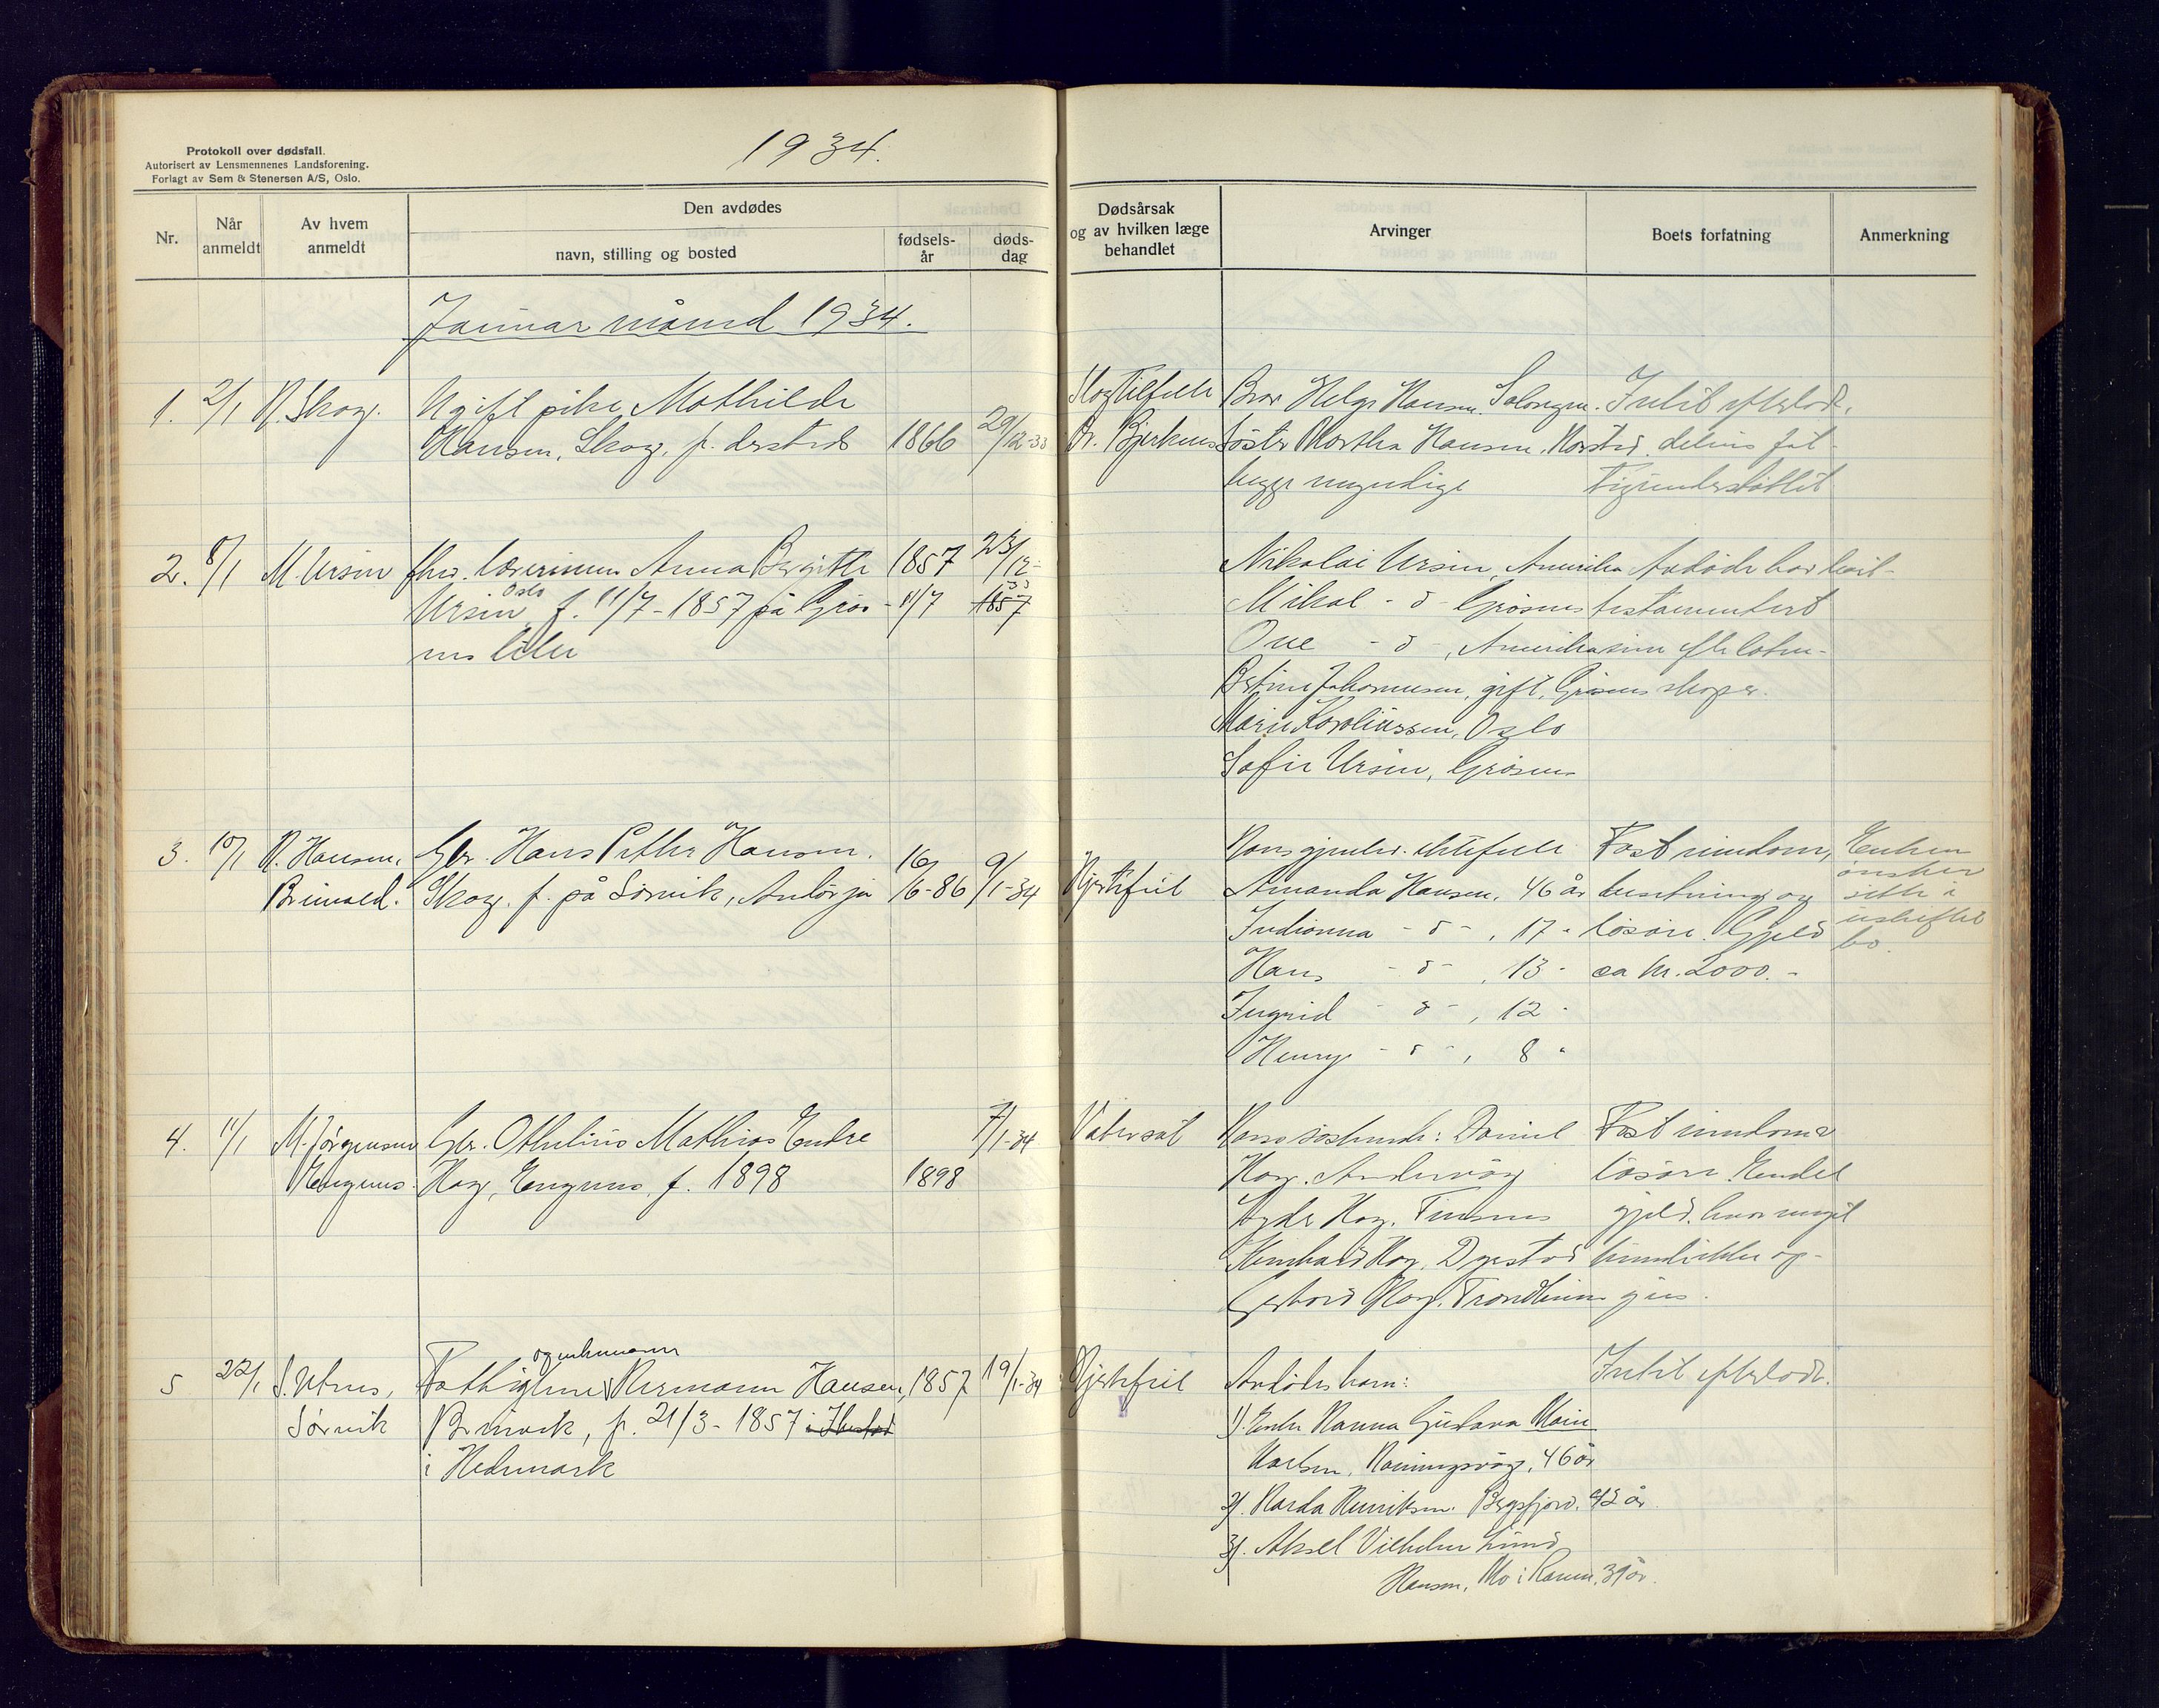 1934.
Protokoll over dødsfall.
Autorisert av Lensmennenes Landsforening.
Forlagt av Sem & Stenersen A/S, Oslo.
Nr.
Når anmeldt
Av hvem anmeldt
Den avdødes
navn, stilling og bosted
fødsels-år
døds-dag
Dødsårsak og av hvilken læge behandlet
Arvinger
Boets forfatning
Anmerkning
Januar måned 1934.
1. 2/1 Skog. Ugift pike Mathilde
Hansen, Skog, f. dersteds 1866 29/12-33
Slagtilfelle
Dr. Bjerknes
Bror Helge Hansen
Søster Martha Hansen, Harstad.
begge myndige
Intet efterlatt,
delvis fat-
tigunderstøttet
2. 8/1 M. Ursin fhv. lærerinne Anna Bergitte 1857 23/12-33
Ursin, Oslo f. 11/7-1857 på Gros- 11/7 1857
nes
Nikolai Ursin, Amerika
Mikal - d - Grosnes
Ove - d -, Amerika
Johannesen, gift, Grosnes
Marie Karoliussen, Oslo
Sofie Ursin, Grosnes
Avdøde har
testamentert
sine efterlaten-
skaper.
3. 10/1 H. Hansen, Gbr. Hans Petter Hansen,
Breivoll. Skog, f. på Sørvik, Andørja 16/6-86 9/1-34
Hjertefeil
Hans gjenlev. ektefelle
Amanda Hansen, 46 år
- d -, 17 "
Hans - d -, 13 "
Ingrid - d -, 12 "
Henry - d -, 8 "
Fast eiendom,
besetning og
løsøre. Gjeld
ca kr. 2000.-
Enken
ønsker
sitte i
uskiftet
bo.
4. 11/1 M. Jørgensen Gbr. Othelius Mathias Endre
Engenes. Hag, Engenes, f. 1898 1898 7/1-34
Vatersot
Hans søskende: Daniel
Hag, Andervåg
Hag, Finsnes
Hag, Dyrstad
Hag, Trondheim
Fast eiendom &
løsøre. Endel
gjeld, hvor meget
kunde ikke op-
gis.
5 22/1
Sørvik
Fattiglem og enkemann Hermann Hansen, 1857 19/1-34
Breivik, f. 21/3-1857
i Hedmark
Hjertefeil
Avdødes barn:
1). Enke Hanna Gustava Marie
Karlsen, Honningsvåg, 46 år
2). Harda Henriksen, Bergsfjord, 42 år
3). Aksel Vilhelm Lund
Hansen, Mo i Rana, 39 år.
Intet efterlatt.